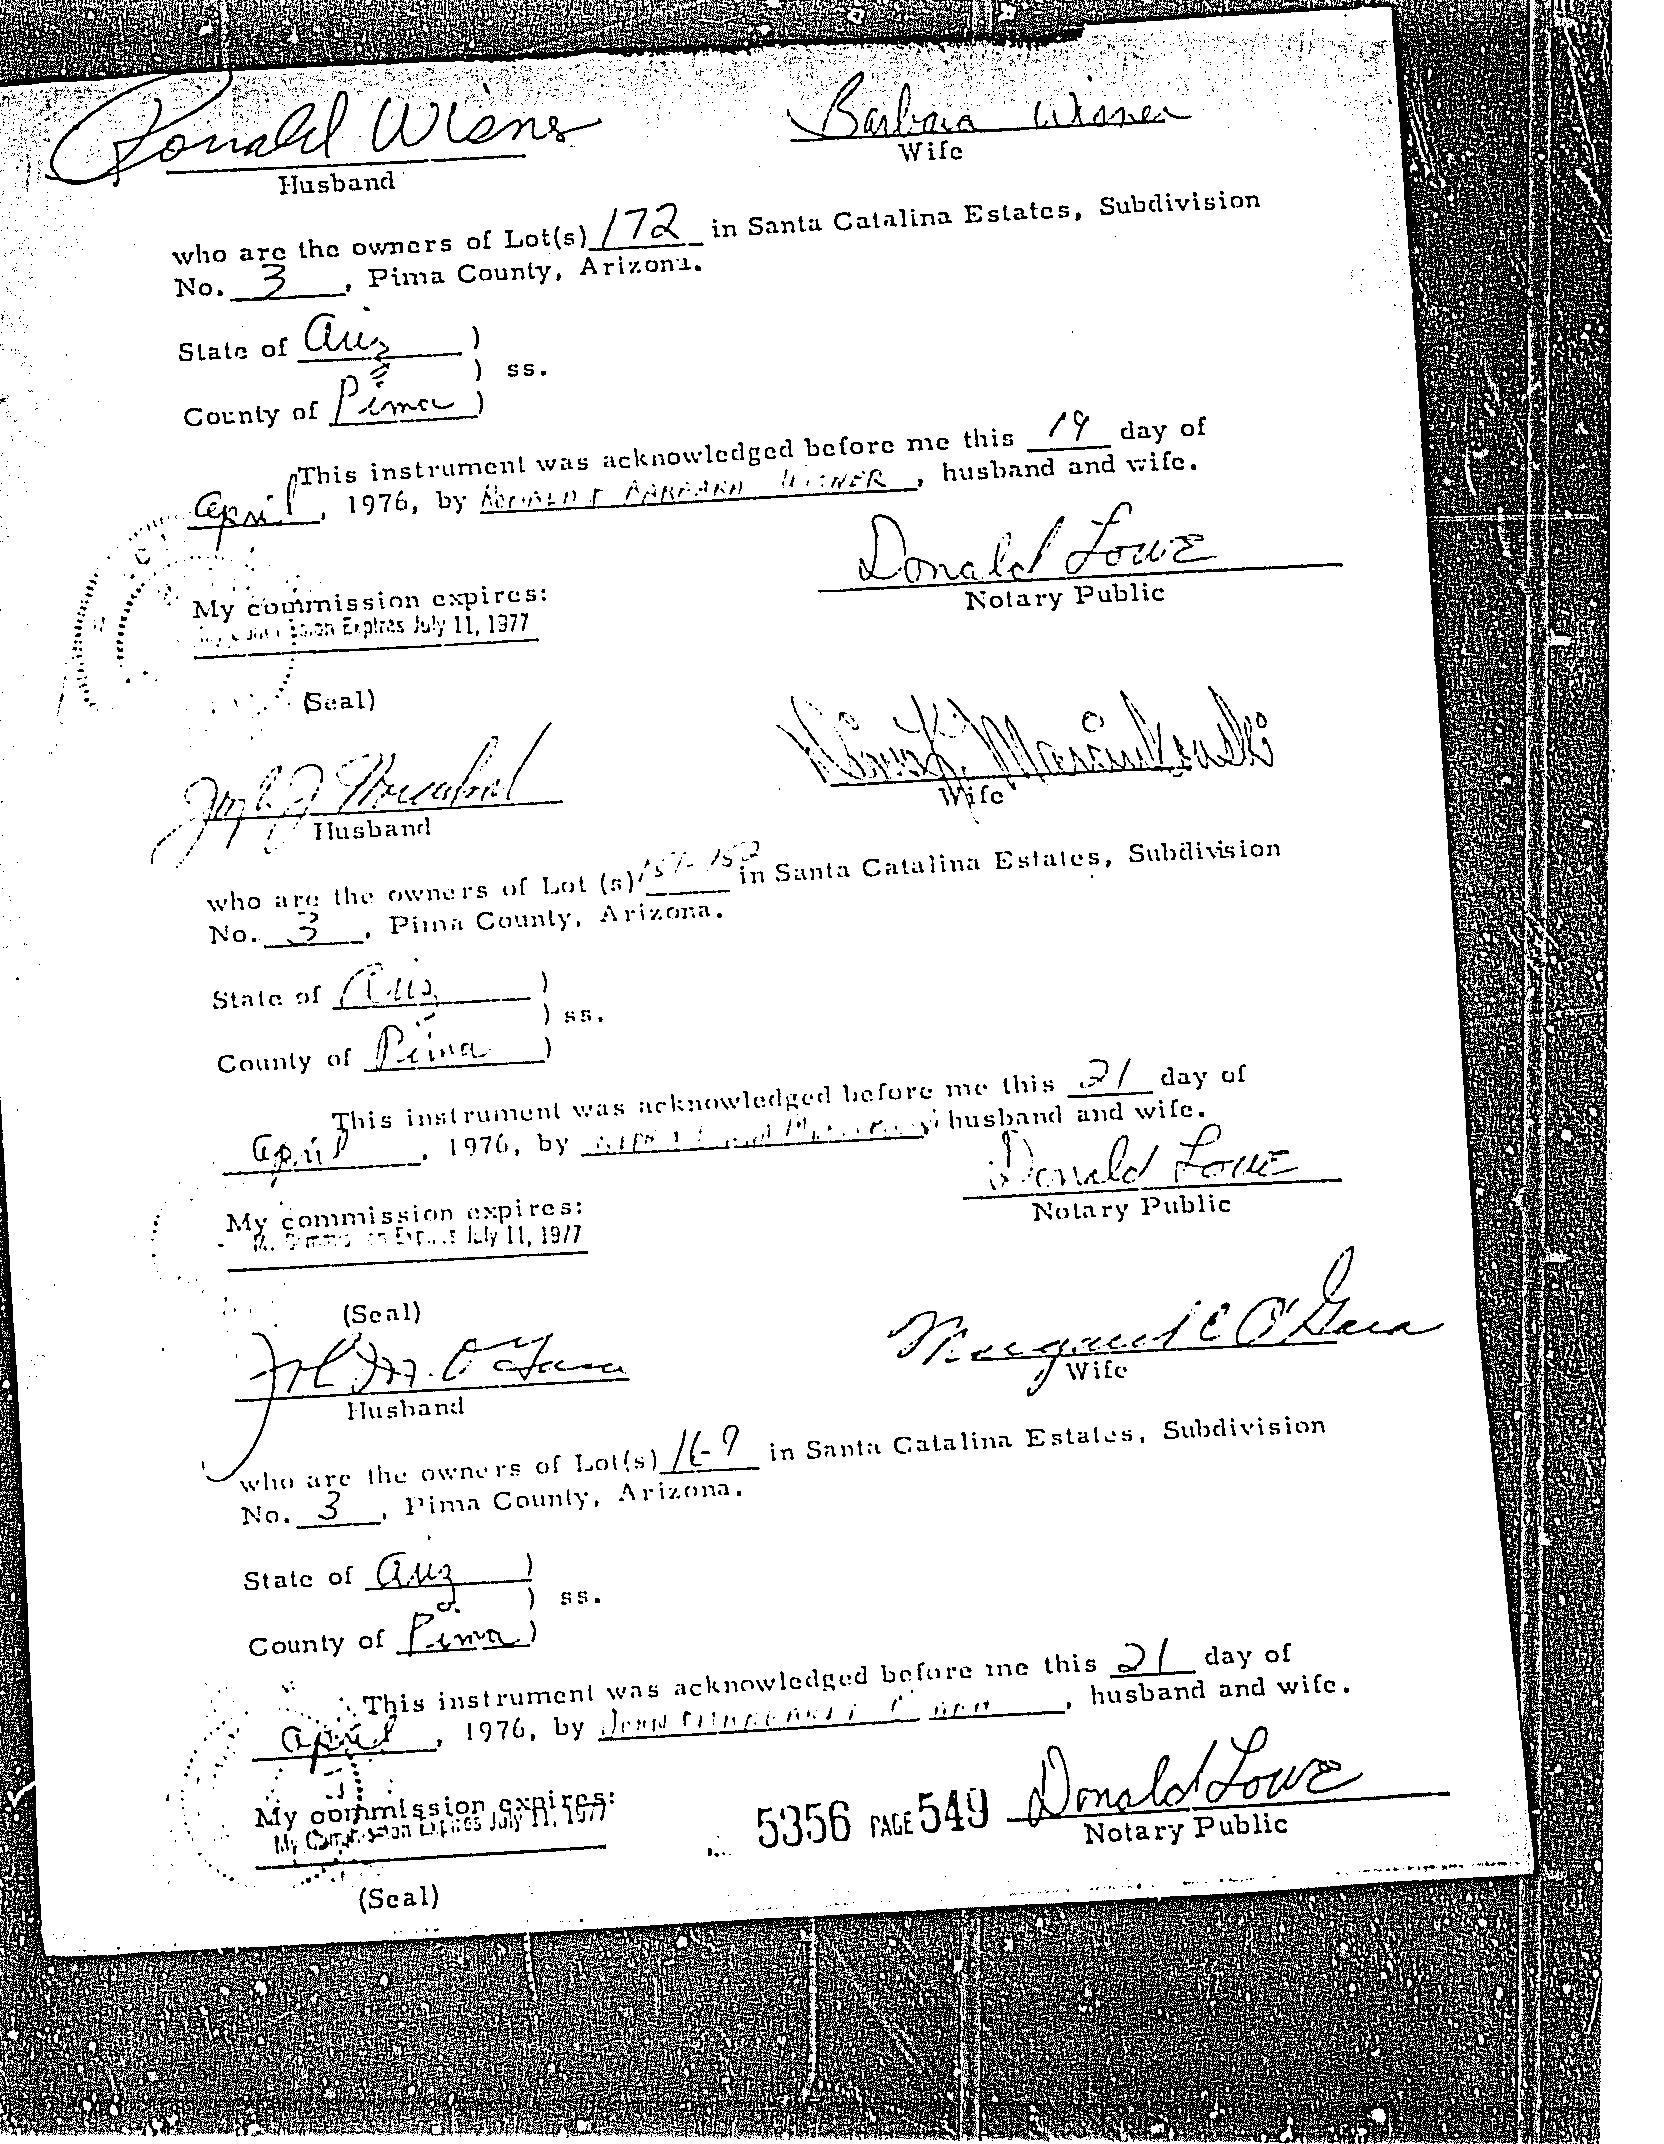 Ronald Wisner Barbara Wisner
Husband Wife
who are the owners of Lot(s) 172 in Santa Catalina Estates, Subdivision
No. 3, Pima County, Arizona.
State of Ariz )
) ss.
County of Pima )
This instrument was acknowledged before me this 19 day of
April, 1976, by RONALD & BARBARA WISNER, husband and wife.
Donald Lowe
Notary Public
My commission expires:
My Commission Expires July 11, 1977
(Seal)
K. Marcinkowski
Husband Wife
who are the owners of Lot (s) in Santa Catalina Estates, Subdivision
No. 3, Pima County, Arizona.
State of Ariz )
) ss.
County of Pima )
This instrument was acknowledged before me this 21 day of
April, 1976, by husband and wife.
Donald Lowe
Notary Public
My commission expires:
My Commission Expires July 11, 1977
(Seal)
M. O'Gara Margaret C O'Gara
Husband Wife
who are the owners of Lot(s) in Santa Catalina Estates, Subdivision
No. 3, Pima County, Arizona.
State of Ariz )
) ss.
County of Pima )
This instrument was acknowledged before me this 21 day of
April, 1976, by JOHN, husband and wife.
Donald Lowe
My commission expires:
My Commission Expires July 11, 1977
5356 PAGE 549
Notary Public
(Seal)